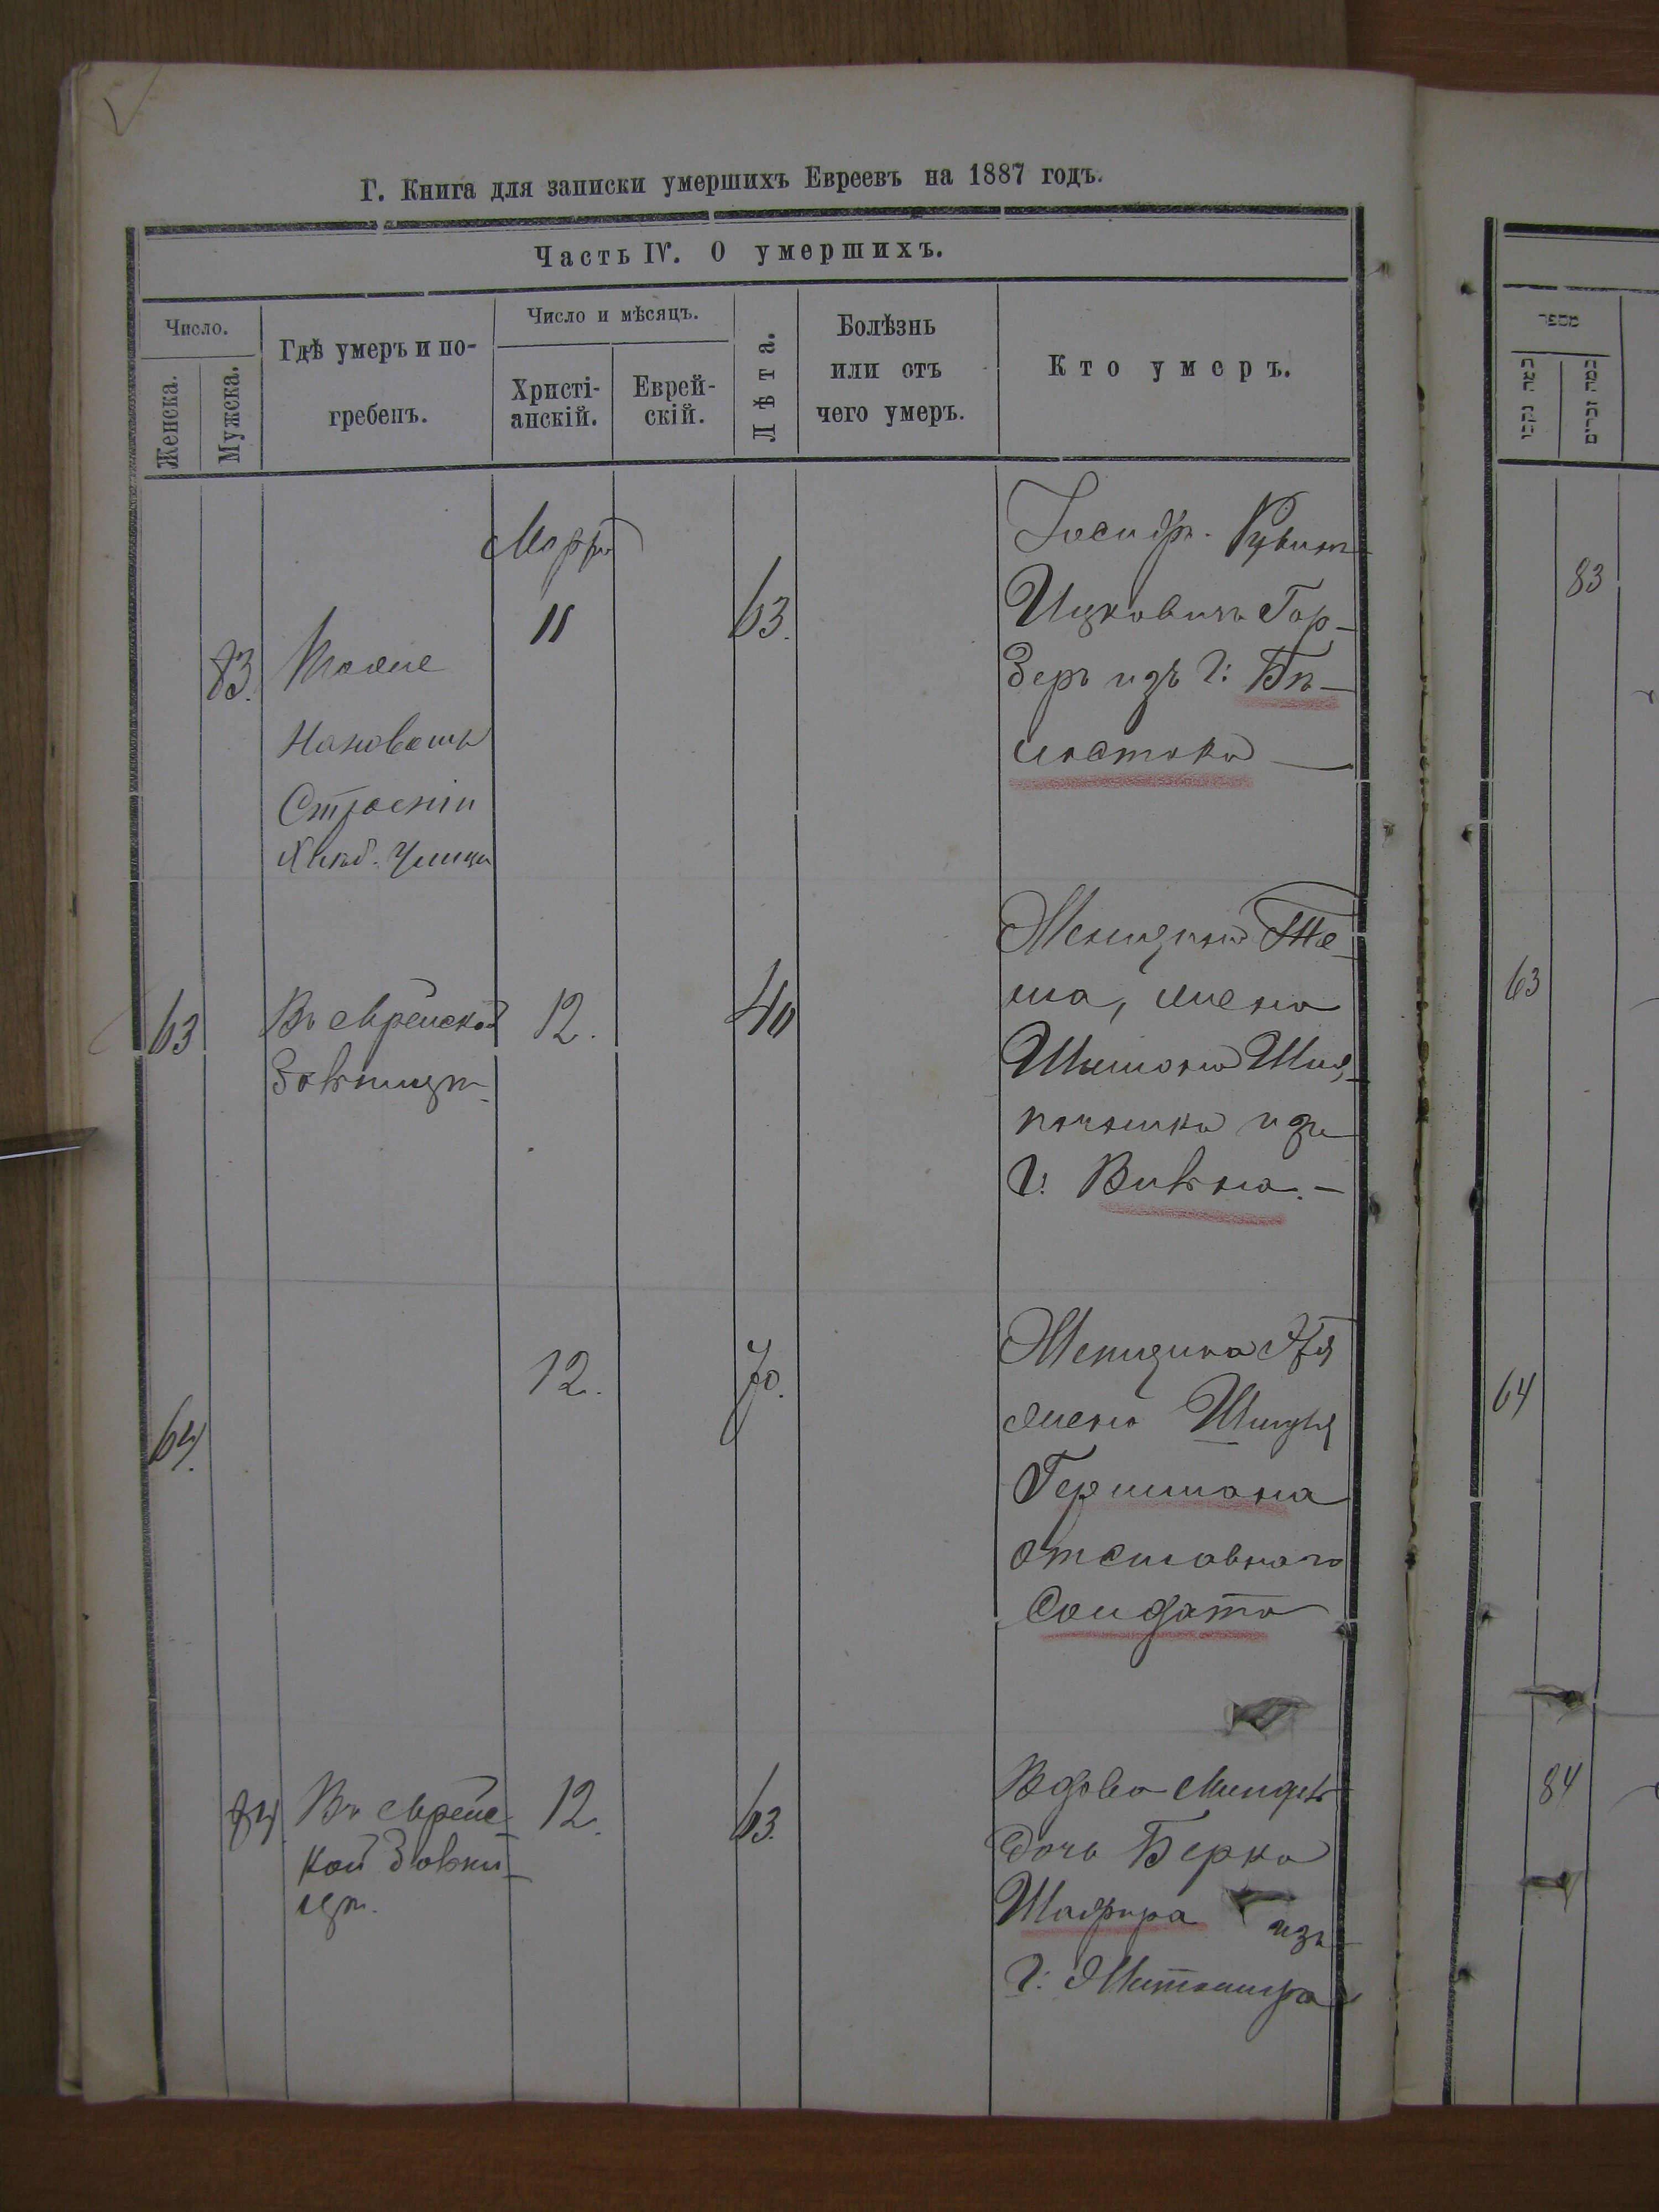 Г. Книга для записки умершихъ Евреевъ на 1887 годъ.
Часть IV. О умершихъ.
Число.
Женска.
Мужска.
Гдѣ умеръ и по-
гребенъ.
Число и мѣсяцъ.
Христі-
анскій.
Еврей-
скій.
Лѣта.
Болѣзнь
или отъ
чего умеръ.
Кто умеръ.
83.
Новаomъ
Строеніи
Хлѣб. Улица
Мартъ
11
63.
Іосифъ. Рувинъ
Ицковичъ Гор-
зеръ изъ г: Бѣ-
лостока
63
Въ еврейской
больницѣ
12.
40
Женщина
жена
Шимона
изъ
г: Вильна. -
64.
12.
70.
Женщина
жена
Гершмана
отставнаго
Солдата
84
Въ еврейс-
кой больни-
цѣ.
12.
63.
Вдова
дочь Берка
Шафира изъ
г: Житомира
מספר
כמה נקבו
כמה זכרים
83
63
64
84